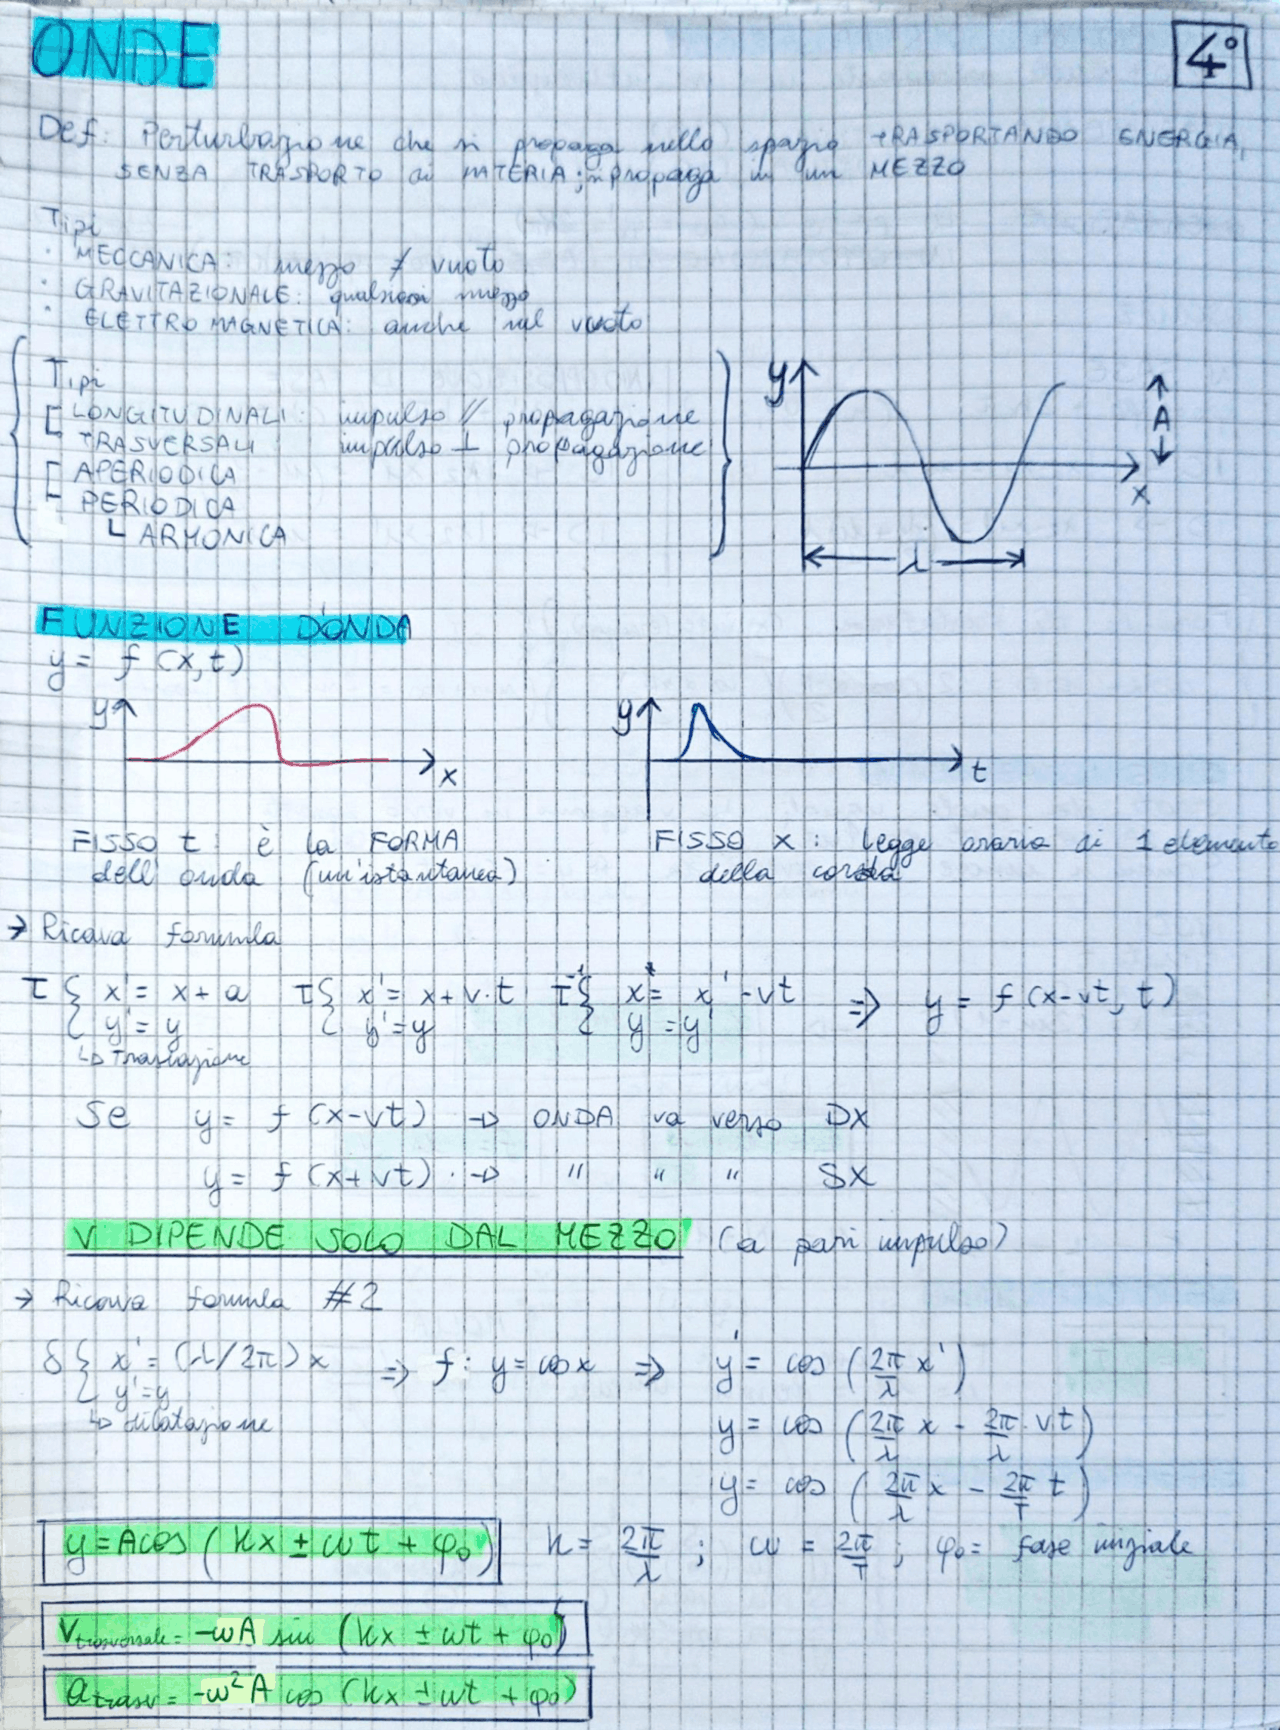 ONDE
4°
Def: Perturbazione che si propaga nello spazio TRASPORTANDO ENERGIA,
SENZA TRASPORTO di MATERIA; si propaga in un MEZZO
Tipi
· MECCANICA: mezzo ≠ vuoto
· GRAVITAZIONALE: qualsiasi mezzo
· ELETTROMAGNETICA: anche nel vuoto
Tipi
LONGITUDINALI: impulso // propagazione
TRASVERSALI impulso ⊥ propagazione
APERIODICA
PERIODICA
ARMONICA
y
A
x
λ
FUNZIONE D'ONDA
y = f (x,t)
y
x
y
t
FISSO t: è la FORMA
dell'onda (un'istantanea)
FISSO x: legge oraria di 1 elemento
della corda
→ Ricava formula
τ { x' = x + a τ { x' = x + v·t τ⁻¹ { x = x' - vt ⇒ y = f (x-vt, t)
y' = y y' = y y = y'
↳ Traslazione
Se y = f (x-vt) → ONDA va verso DX
y = f (x+vt) · → " " " SX
V DIPENDE SOLO DAL MEZZO (a pari impulso)
→ Ricava formula #2
δ { x' = (λ/2π)x ⇒ f: y = cos x ⇒ y' = cos (2π/λ x')
y' = y
↳ dilatazione
y = cos (2π/λ x - 2π/λ · vt)
y = cos (2π/λ x - 2π/T t)
y = A cos (kx ± ωt + φ₀) k = 2π/λ ; ω = 2π/T ; φ₀ = fase iniziale
Vtrasversale = -ωA sin (kx ± ωt + φ₀)
atrasv = -ω²A cos (kx ± ωt + φ₀)